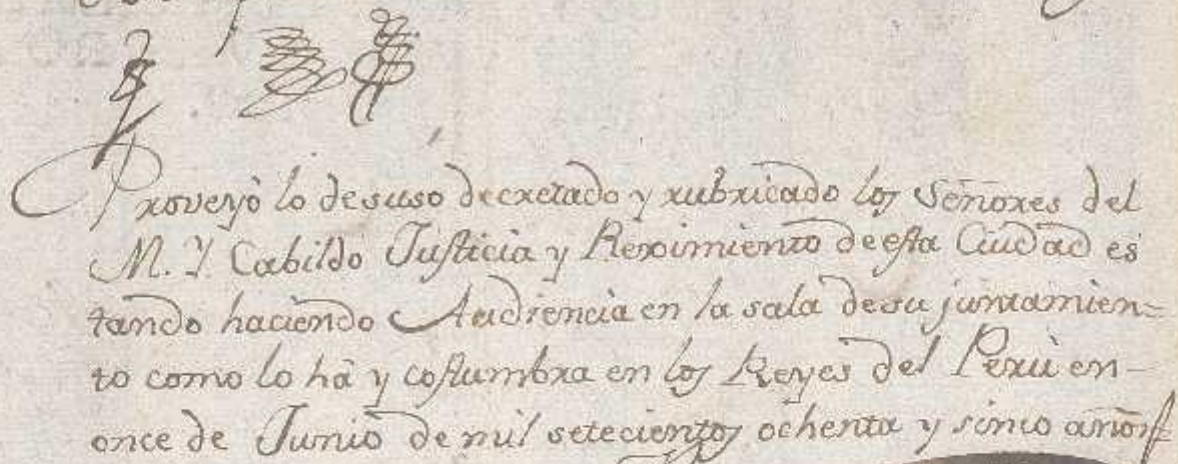 Proveyó lo desuso decretado y rubricado los Señores del
M. Y. Cabildo Justicia y Reximiento de esta Ciudad es
tando haciendo Audiencia en la sala de su juntamien=
to como lo há y costumbra en los Reyes del Perú en
once de Junio de mil setecientos ochenta y sinco años